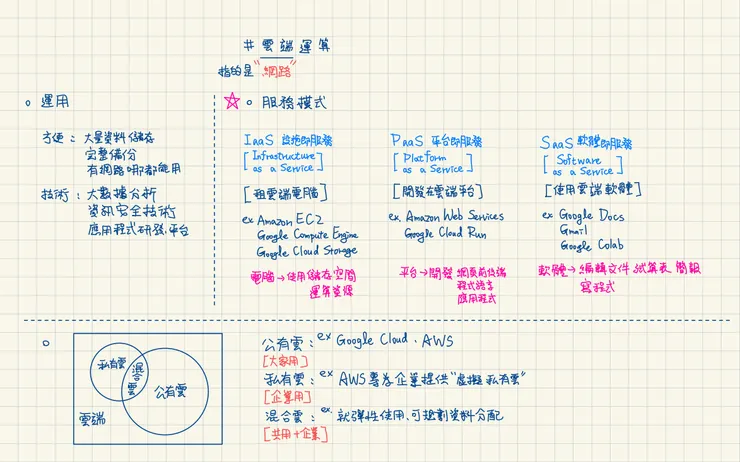 # 雲端運算
指的是"網路"
運用
方便：大量資料儲存
完整備份
有網路哪都能用
技術：大數據分析
資訊安全技術
應用程式研發平台
☆ 服務模式
IaaS 設施即服務
[Infrastructure
as a Service]
[租雲端電腦]
ex Amazon EC2
Google Compute Engine
Google Cloud Storage
電腦→使用儲存空間
運算資源
PaaS 平台即服務
[Platform
as a Service]
[開發在雲端平台]
ex. Amazon Web Services
Google Cloud Run
平台→開發 網頁前後端
程式語言
應用程式
SaaS 軟體即服務
[Software
as a Service]
[使用雲端軟體]
ex. Google Docs
Gmail
Google Colab
軟體→編輯文件 試算表 簡報
寫程式
私有雲
混合雲
公有雲
雲端
公有雲：ex Google Cloud、AWS
[大家用]
私有雲：ex AWS專為企業提供"虛擬私有雲"
[企業用]
混合雲：ex. 就彈性使用、可規劃資料分配
[共用+企業]